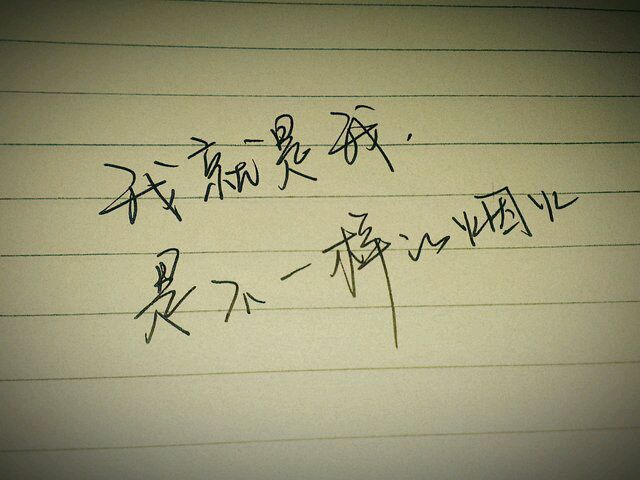 我就是我.
是不一样的烟火